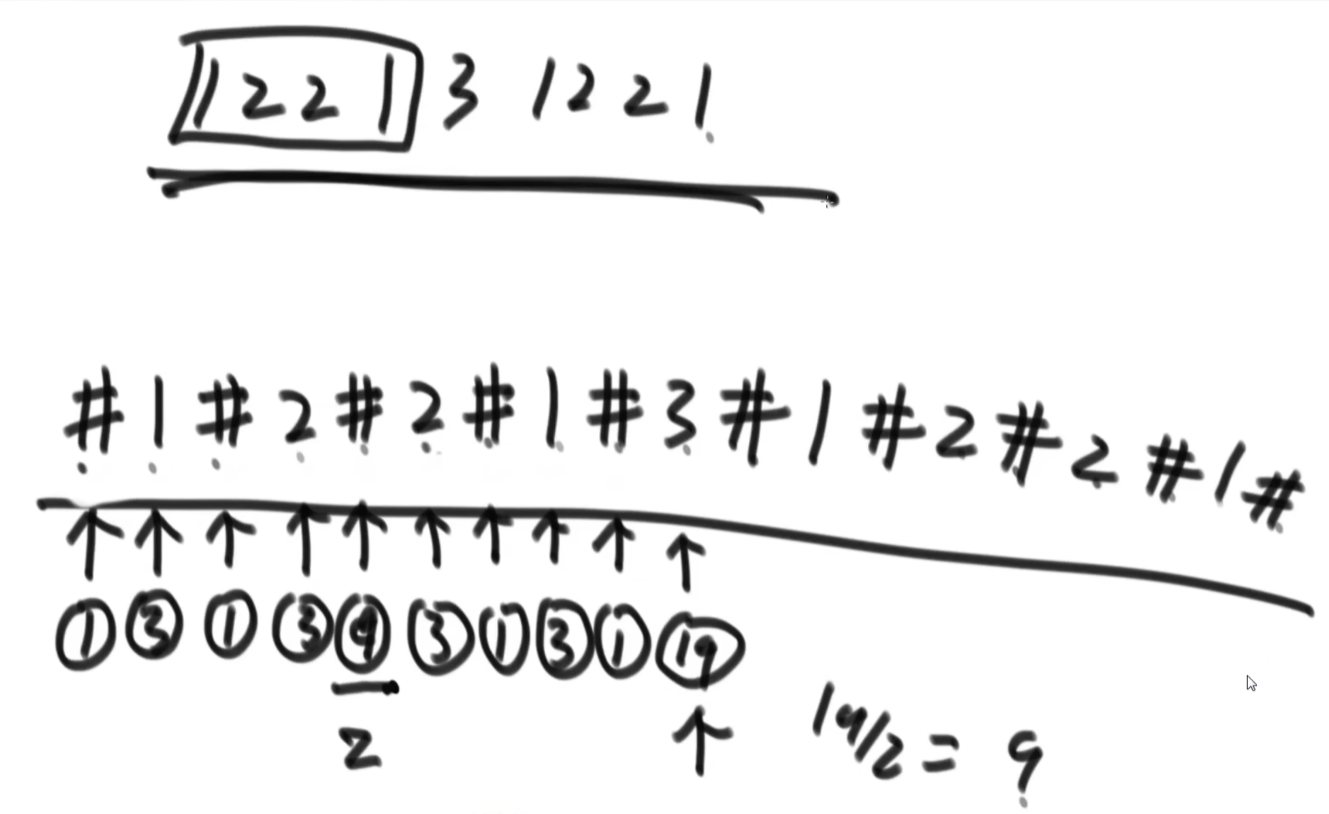 1 2 2 1 3 1 2 2 1
# 1 # 2 # 2 # 1 # 3 # 1 # 2 # 2 # 1 #
1 3 1 3 9 3 1 3 1 19
2
19/2 = 9